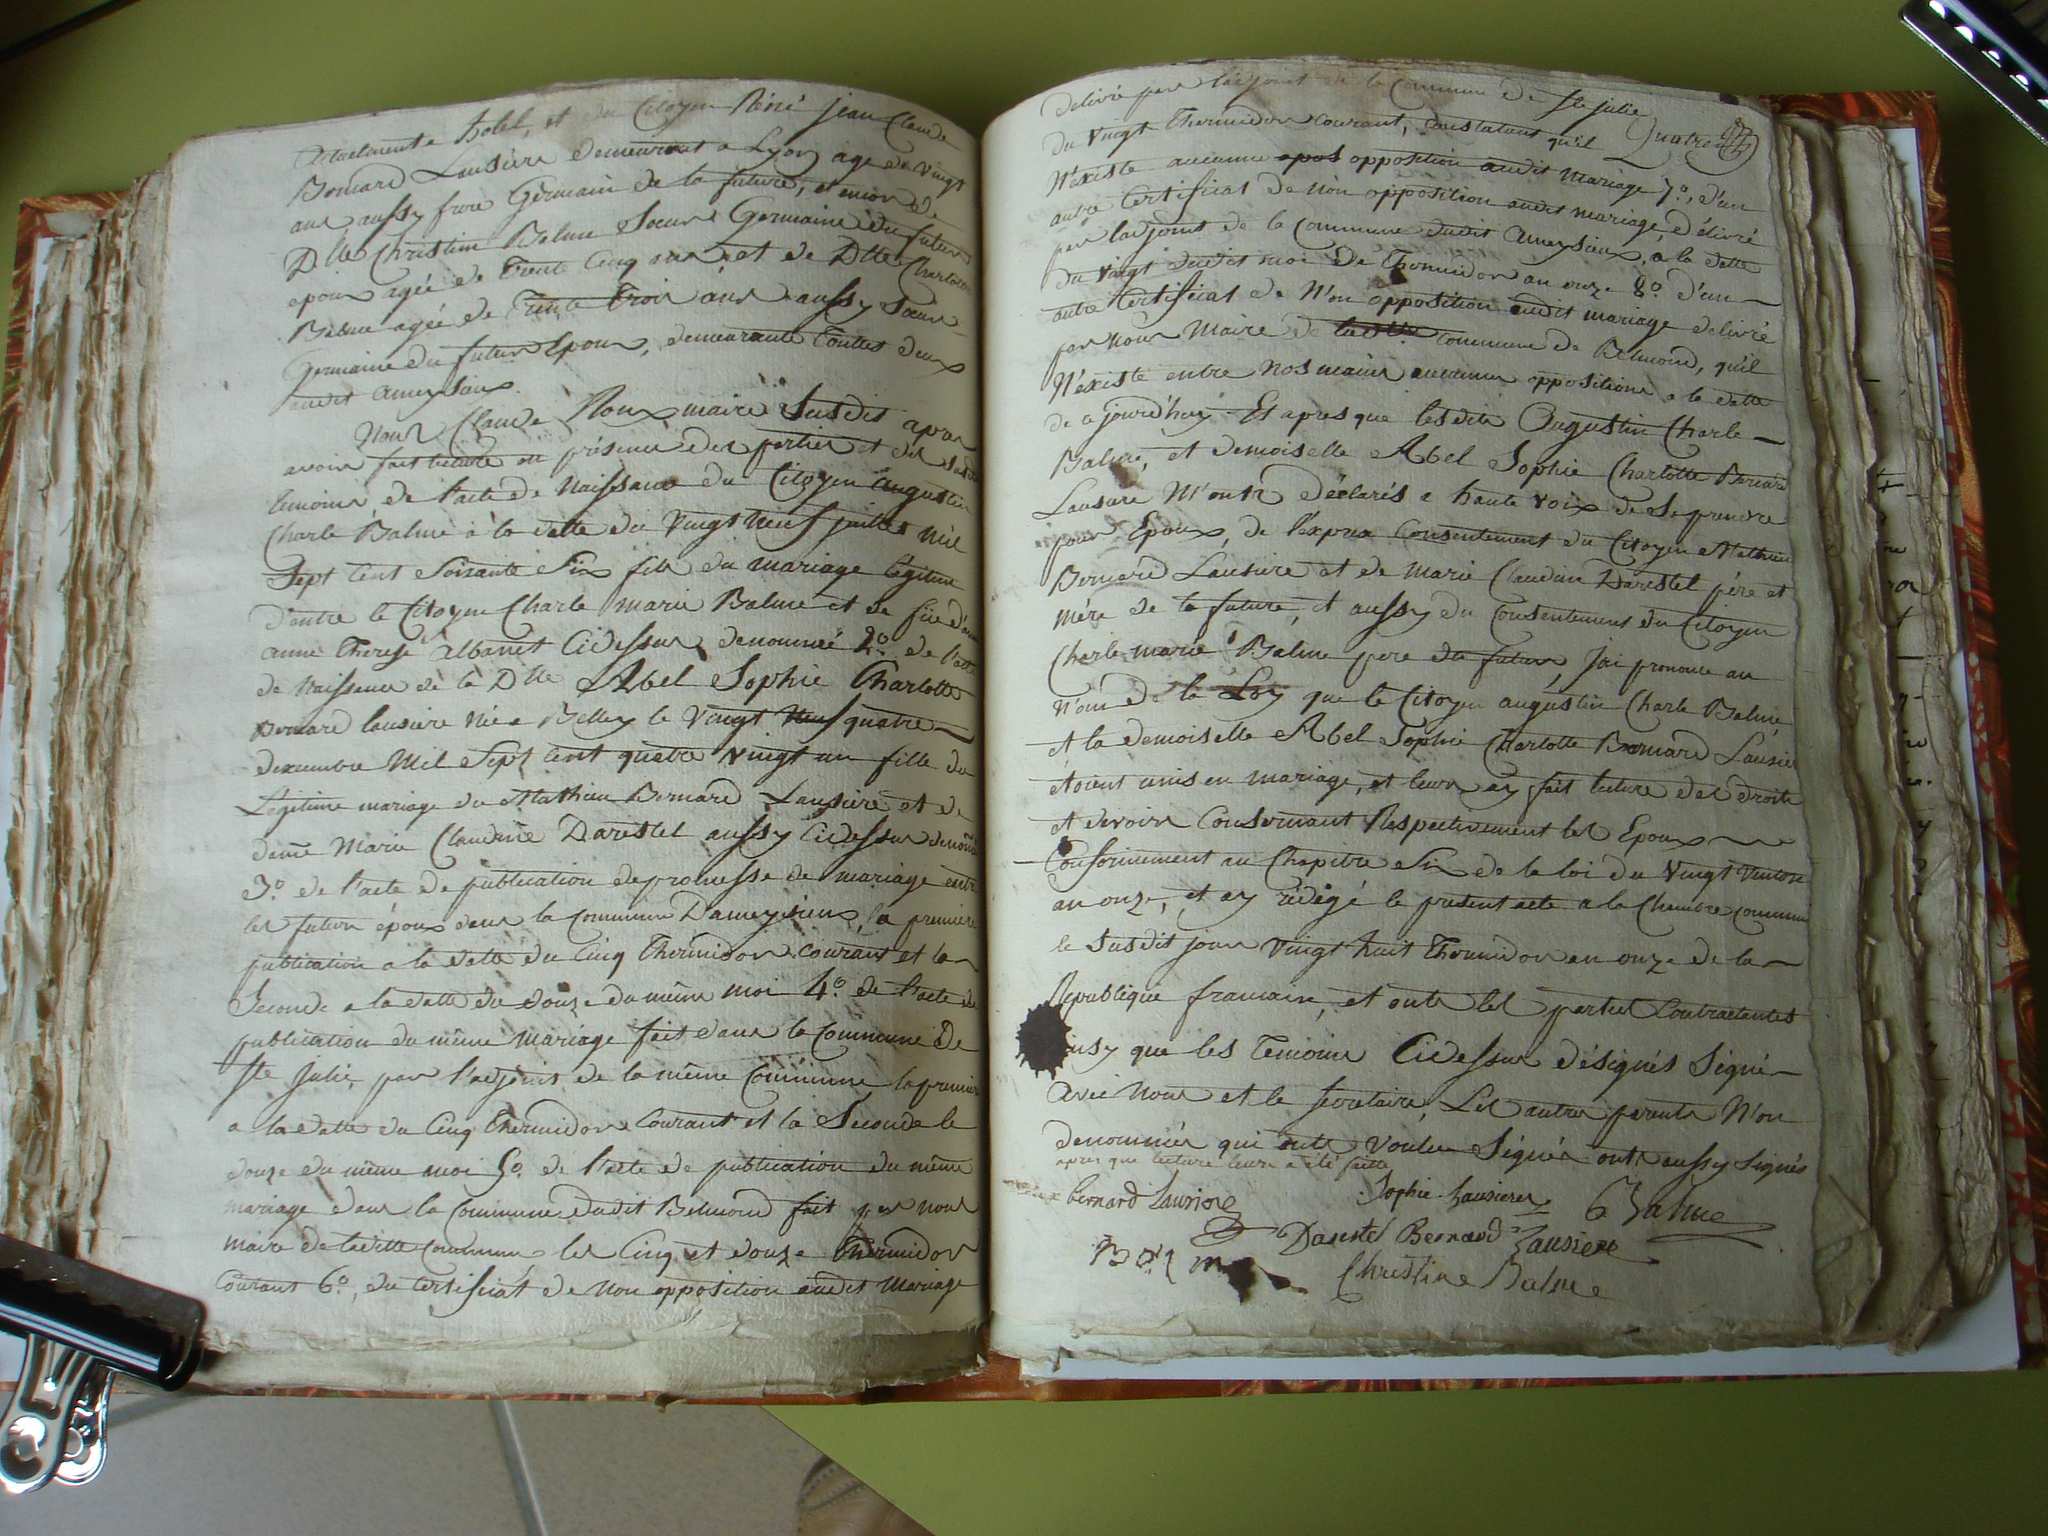 hotel, et du Citoyen Réné jean Claude
Bernard Lausiere demeurant a Lyon agé de vingt
ans aussy frere Germain de la future, encor de
Dlle Christine Balme Sœur Germaine du futur
epoux agée de Trente Cinq ans et de Dlle Charlotte
Balme agée de Trente Trois ans aussy Sœur
Germaine du futur Epoux, demeurante Touttes deux
audit Ameysieux
Nous Claude Roux maire Susdit apres
avoir fait lecture en présence des parties et des susdits
temoins, de l'acte de Naissance du Citoyen Augustin
Charle Balme à la datte du Vingt Neuf juillet mil
Sept Cent Soixante Six fils du mariage légitime
d'entre le Citoyen Charle marie Balme et de
anne Therese albanet Cidessus denommé 2º de l'acte
de Naissance de la Dlle Abel Sophie Charlotte
Bernard lausiere Née a Belley le Vingt Neuf quatre
decembre Mil Sept Cent quatre Vingt un fille du
Légitime mariage du Mathieu Bernard Lausiere et de
dame Marie Claudine Darestel aussy Cidessus denommé
3º de l'acte de publication de promesse de mariage entre
les futurs époux dans la Commune Dameysieux, la premiere
publication a la datte du Cinq Thermidor courant et la
Seconde a la datte du douze du même moi 4º de l'acte de
publication du même mariage fait dans la Commune De
Ste Julie, par l'adjoint de la même Commune la premiere
a la datte du Cinq Thermidor Courant et la Seconde le
douze du même moi 5º de l'acte de publication du même
mariage dans la Commune dudit Belmond fait par nous
maire de laditte Commune les Cinq et douze Thermidor
Courant 6º, du certificat de Non opposition audit Mariage
delivré par l'adjoint de la Commune de Ste julie
du Vingt Thermidor courant, Constatant qu'il Quatre
N'existe aucunne opos opposition audit Mariage 7º, d'un
autre Certificat de Non opposition audit mariage, délivré
par l'adjoint de la Commune dudit Ameysieux, a la datte
du Vingt dudit moi de Thermidor an onze 8º d'un
autre Certificat de Non opposition audit mariage delivré
par Nous Maire de ladite commune de Belmond, qu'il
N'existe entre Nos mains aucunne opposition a la datte
de ajourd'huy - Et apres que lesdits Augustin Charle
Balme, et demoiselle Abel Sophie Charlotte Bernard
Lausiere M'ont déclarés a haute voix de Se prendre
pour Epoux, de l'expres Consentement du Citoyen Mathieu
Bernard Lausiere et de Marie Claudine Darestel pére et
mére de la future, et aussy du Consentement du Citoyen
Charle marie Balme pere du futur, jai prononcé au
Nom de la Loy que le Citoyen augustin Charle Balme
et la demoiselle Abel Sophie Charlotte Bernard Lausiere
étoient unis en mariage, et leurs ay fait lecture des droits
et devoirs Consernant Respectivement les Epoux
Conformement au Chapitre Six de la loi du Vingt Ventose
an onze, et ay rédigé le present acte a la Chambre Commune
le Susdit jour Vingt huit Thermidor an onze de la
Republique francaise, et ont les parties Contractantes
insy que les Temoins Cidessus désignés Signé
avec Nous et le secretaire, Les autres parents N'on
denommés qui ont voulu Signér ont aussy Signés
apres que lecture leurs a été faitte
bernard Lausiere Sophie Lausiere Balme
Darestel Bernard Lausiere
Christine Balme